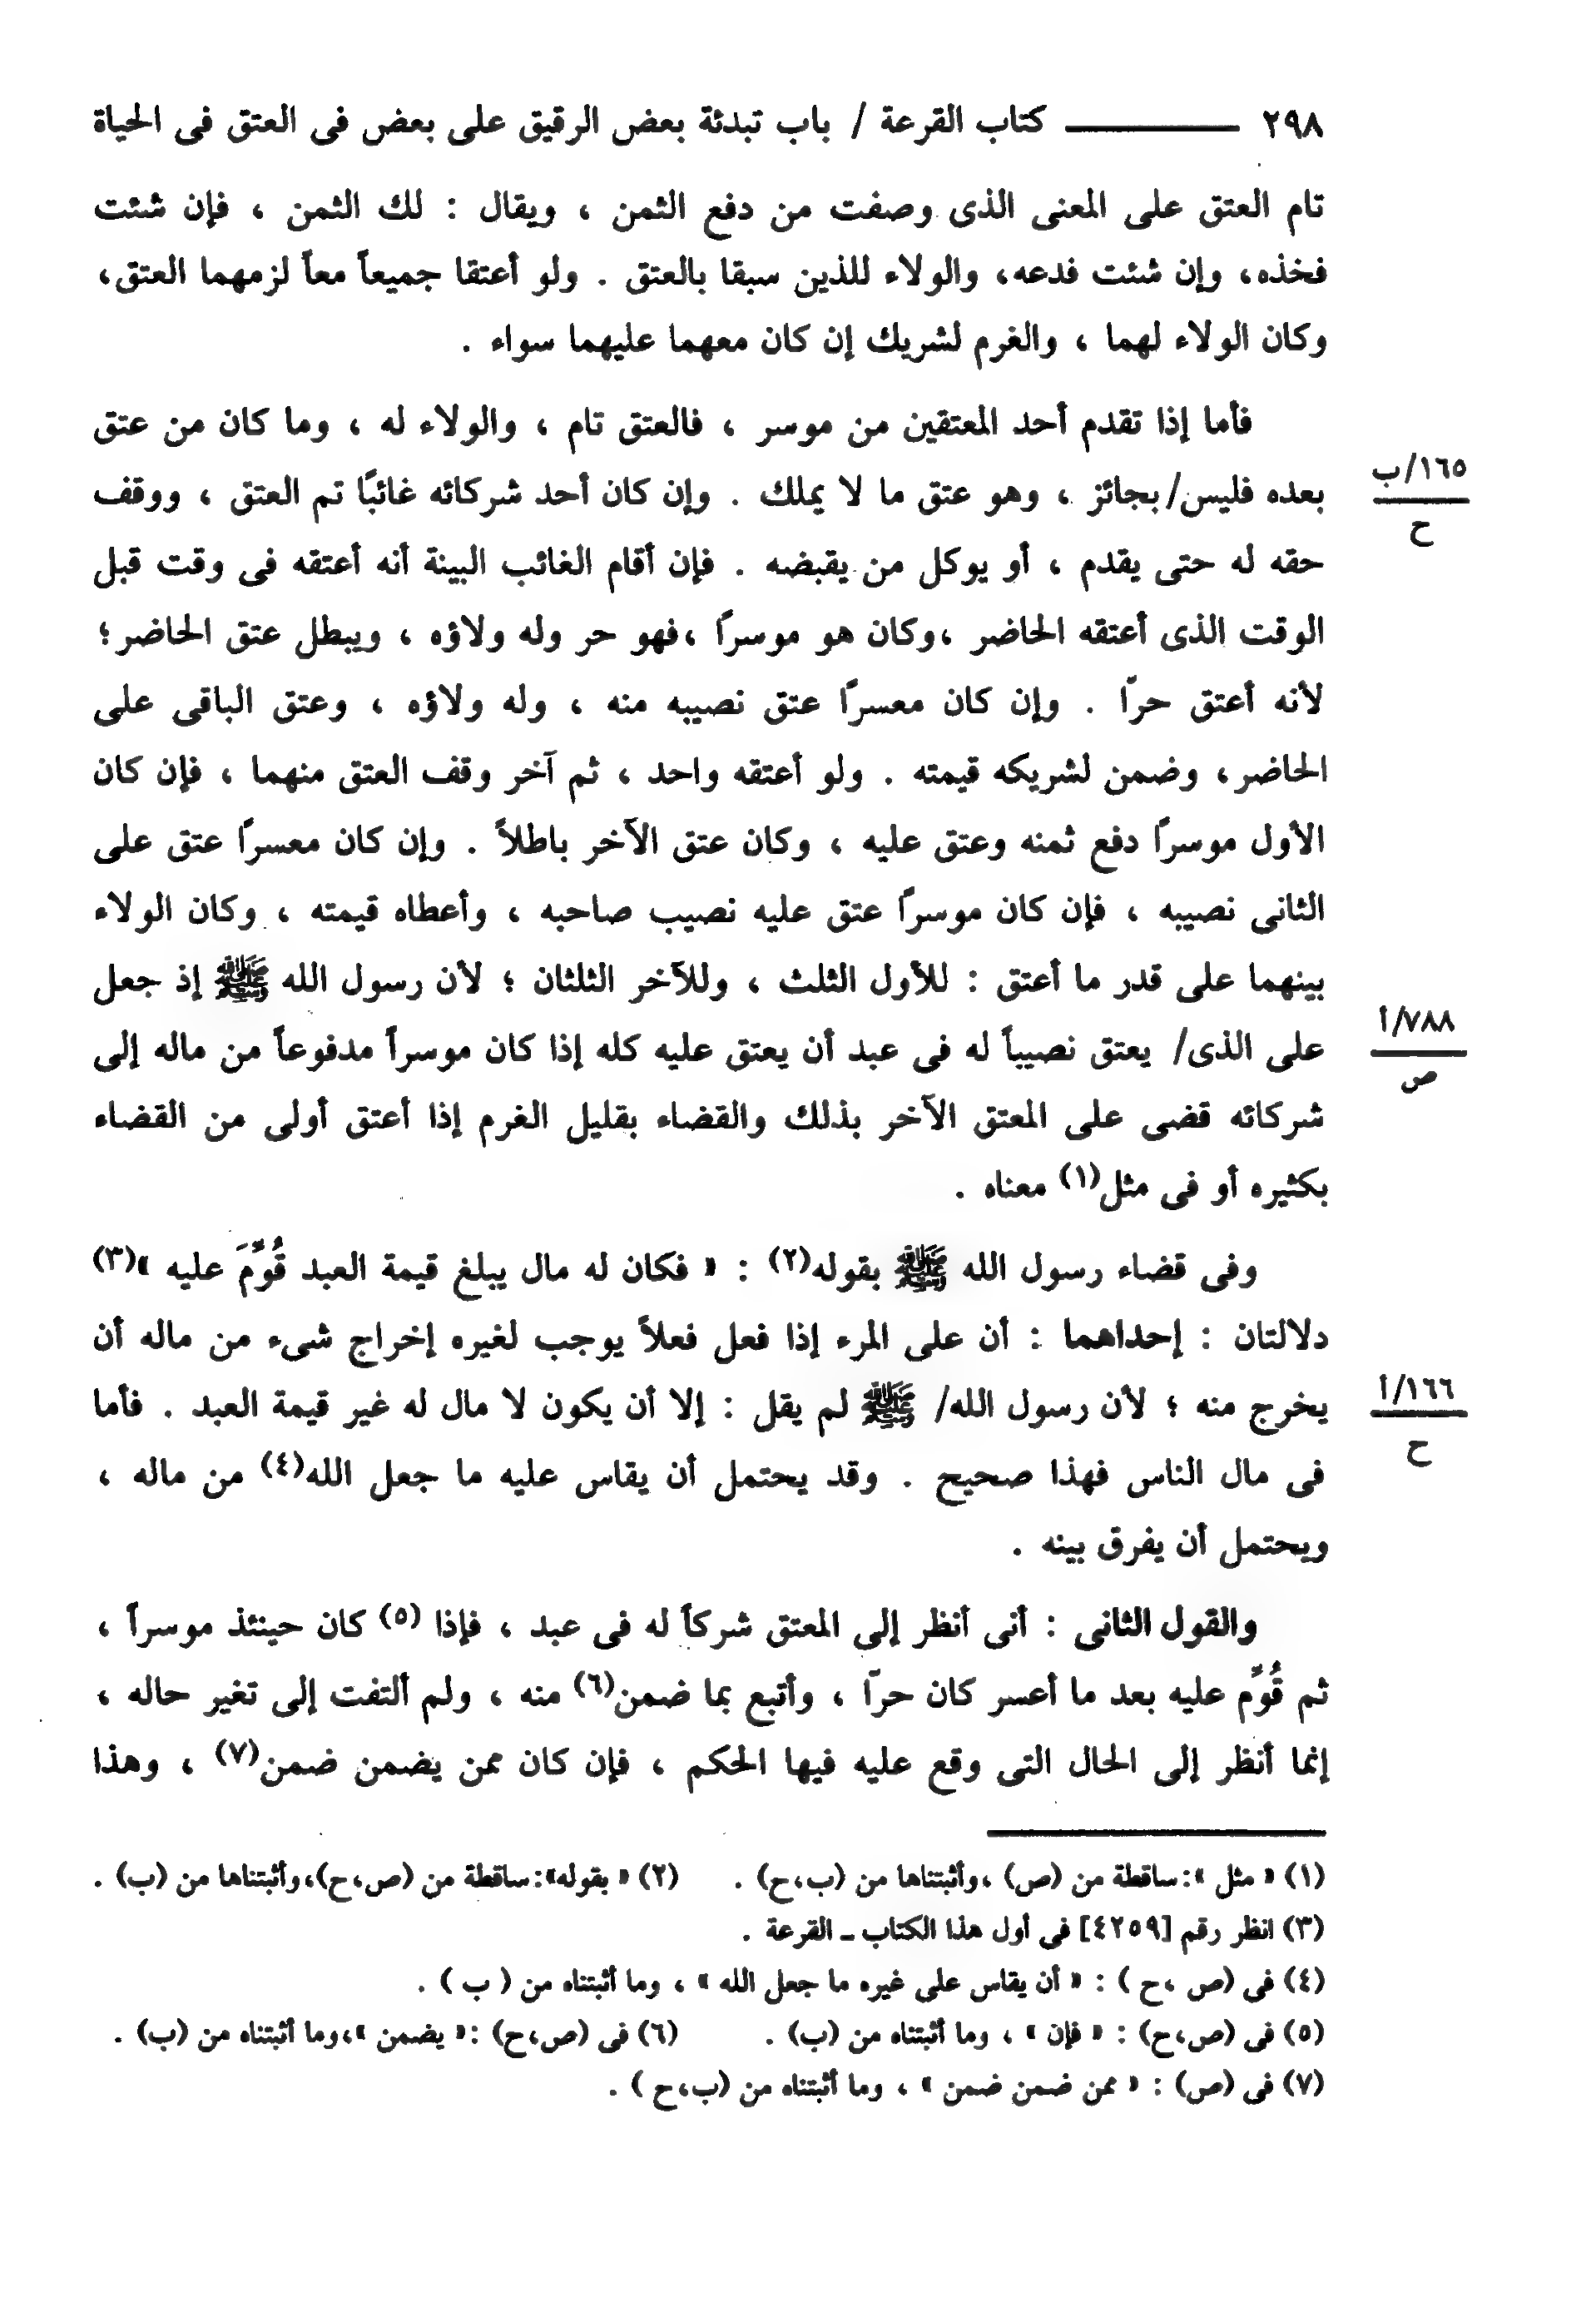 ٢٩٨ ـــــــــ كتاب القرعة / باب تبدئة بعض الرقيق على بعض فى العتق فى الحياة
تام العتق على المعنى الذى وصفت من دفع الثمن ، ويقال : لك الثمن ، فإن شئت
فخذه، وإن شئت فدعه، والولاء للذين سبقا بالعتق . ولو أعتقا جميعاً معاً لزمهما العتق،
وكان الولاء لهما ، والغرم لشريك إن كان معهما عليهما سواء .
فأما إذا تقدم أحد المعتقين من موسر ، فالعتق تام ، والولاء له ، وما كان من عتق
١٦٥/ب
ح
بعده فليس/ بجائز ، وهو عتق ما لا يملك . وإن كان أحد شركائه غائبًا تم العتق ، ووقف
حقه له حتى يقدم ، أو يوكل من يقبضه . فإن أقام الغائب البينة أنه أعتقه فى وقت قبل
الوقت الذى أعتقه الحاضر ،وكان هو موسرًا ،فهو حر وله ولاؤه ، ويبطل عتق الحاضر؛
لأنه أعتق حرّا . وإن كان معسرًا عتق نصيبه منه ، وله ولاؤه ، وعتق الباقى على
الحاضر، وضمن لشريكه قيمته . ولو أعتقه واحد ، ثم آخر وقف العتق منهما ، فإن كان
الأول موسرًا دفع ثمنه وعتق عليه ، وكان عتق الآخر باطلاً . وإن كان معسرًا عتق على
الثانى نصيبه ، فإن كان موسرًا عتق عليه نصيب صاحبه ، وأعطاه قيمته ، وكان الولاء
بينهما على قدر ما أعتق : للأول الثلث ، وللآخر الثلثان ؛ لأن رسول الله ﷺ إذ جعل
٧٨٨/أ
ص
على الذى/ يعتق نصيباً له فى عبد أن يعتق عليه كله إذا كان موسراً مدفوعاً من ماله إلى
شركائه قضى على المعتق الآخر بذلك والقضاء بقليل الغرم إذا أعتق أولى من القضاء
بكثيره أو فى مثل(١) معناه .
وفى قضاء رسول الله ﷺ بقوله(٢) : « فكان له مال يبلغ قيمة العبد قُوِّمَ عليه »(٣)
دلالتان : إحداهما : أن على المرء إذا فعل فعلاً يوجب لغيره إخراج شىء من ماله أن
١٦٦/أ
ح
يخرج منه ؛ لأن رسول الله/ ﷺ لم يقل : إلا أن يكون لا مال له غير قيمة العبد . فأما
فى مال الناس فهذا صحيح . وقد يحتمل أن يقاس عليه ما جعل الله(٤) من ماله ،
ويحتمل أن يفرق بينه .
والقول الثانى : أنى أنظر إلى المعتق شركاً له فى عبد ، فإذا (٥) كان حينئذ موسراً ،
ثم قُوِّم عليه بعد ما أعسر كان حرّا ، وأتبع بما ضمن(٦) منه ، ولم ألتفت إلى تغير حاله ،
إنما أنظر إلى الحال التى وقع عليه فيها الحكم ، فإن كان ممن يضمن ضمن(٧) ، وهذا
(١) « مثل »: ساقطة من (ص) ،وأثبتناها من (ب،ح) . (٢) « بقوله»: ساقطة من (ص،ح)،وأثبتناها من (ب) .
(٣) انظر رقم [٤٢٥٩] فى أول هذا الكتاب ـ القرعة .
(٤) فى (ص ،ح ) : « أن يقاس على غيره ما جعل الله » ، وما أثبتناه من ( ب ) .
(٥) فى (ص،ح) : « فإن » ، وما أثبتناه من (ب) . (٦) فى (ص،ح) :« يضمن »،وما أثبتناه من (ب) .
(٧) فى (ص) : « ممن ضمن ضمن » ، وما أثبتناه من (ب،ح ) .